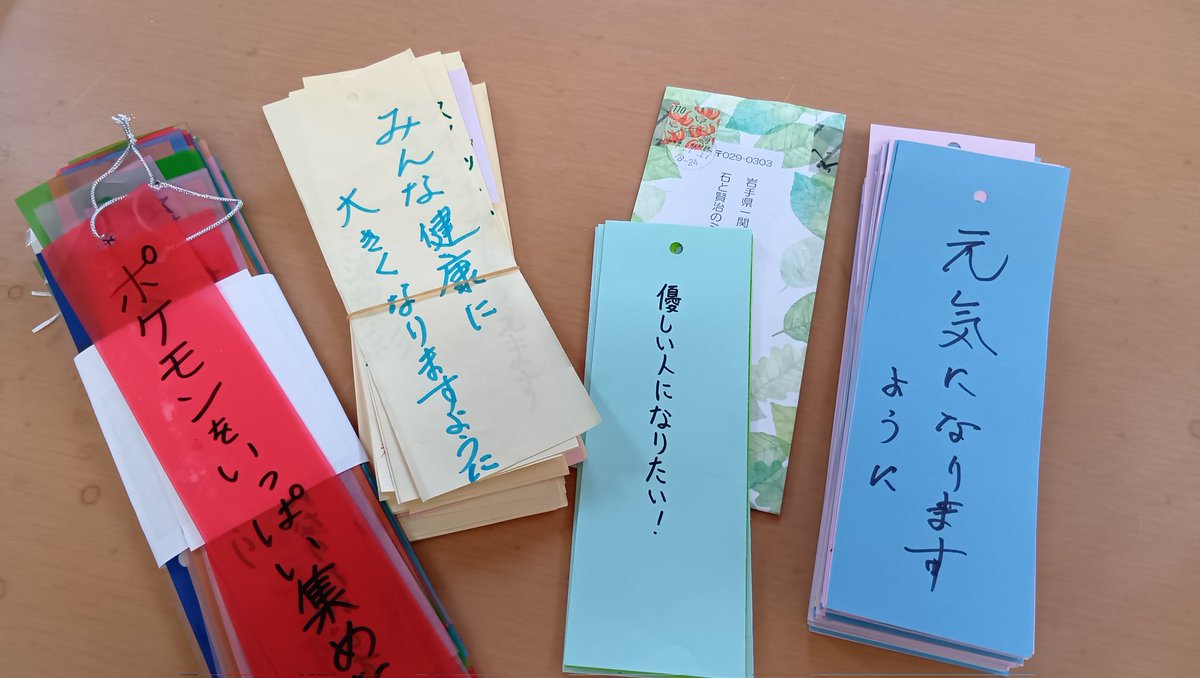 ポケモンをいっぱい集め
みんな健康に
大きくなりますように
110
〒029-0303
岩手県一関
石と賢治の
優しい人になりたい！
元気になります
ように